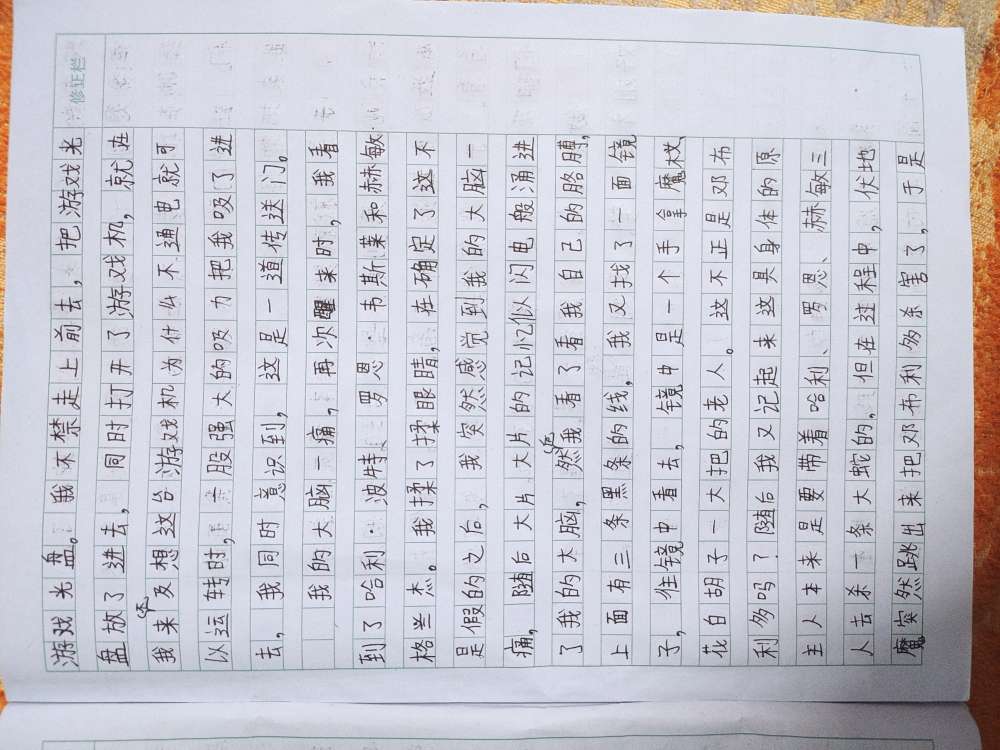 修证栏
游戏光盘。我不禁走上前去，把游戏光
盘放了进去，同时打开了游戏机，就在
我还来及想这台游戏机为什么不通电就可
以运转时，一股强大的吸力把我吸了进
去，我同时意识到，这是一道传送门。
我的大脑一痛，再次醒来时，我看
到了哈利·波特、罗恩·韦斯莱和赫敏·
格兰杰。我揉了揉眼睛，在确定了这不
是假的之后，我突然感觉到我的大脑一
痛，随后大片大片的记忆似闪电般涌进
了我的大脑，然后我看了看我自己的胳膊，
上面有三条黑条的线，我又找了一面镜
子，往镜中看去，镜中是一个手拿魔杖
花白胡子一大把的老人。这不正是邓布
利多吗？随后我又记起来这具身体的原
主人本来是要带着哈利、罗恩、赫敏三
人去杀一条大蛇的，但在过程中，伏地
魔突然跳出来把邓布利多杀害了，于是